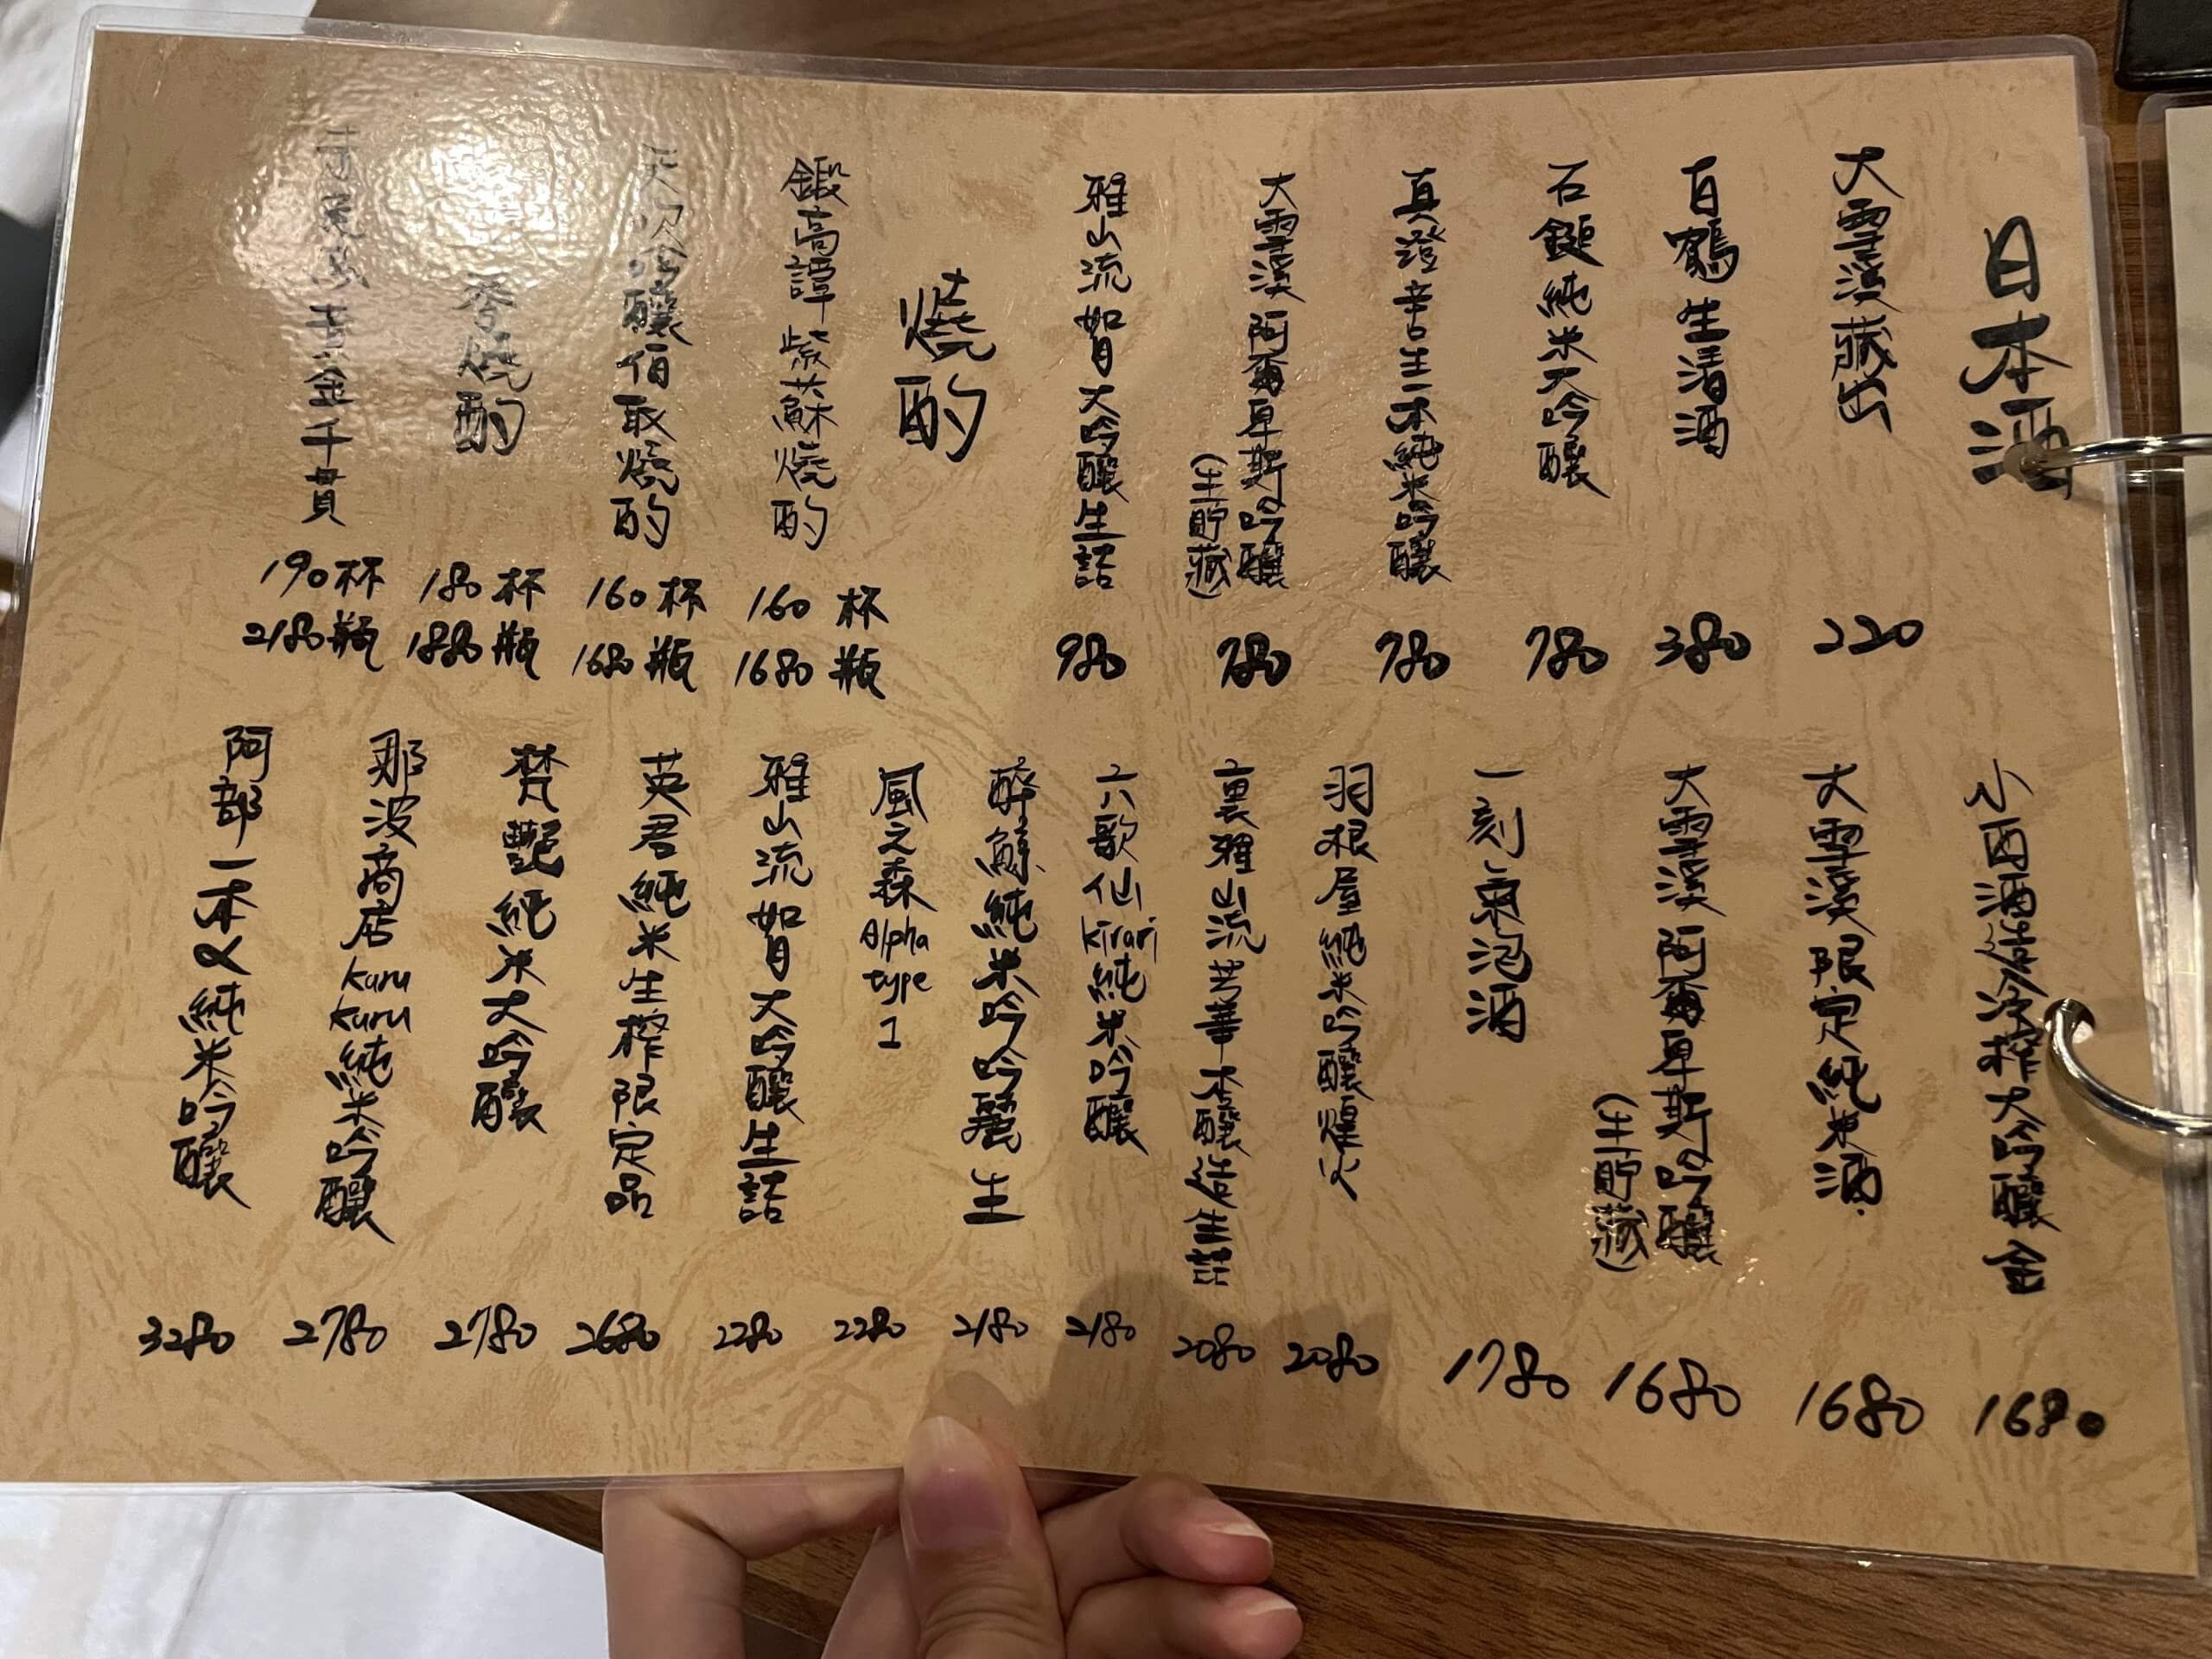 日本酒
大雪渓藏出
220
白鶴生清酒
380
石鎚純米大吟釀
780
真澄辛口生一本純米吟釀
780
大雪渓阿爾卑斯吟釀
(生貯藏)
780
雅山流如月大吟釀生詰
980
燒酌
鍛高譚紫蘇燒酌
160杯
1680瓶
天吹吟釀佰取燒酌
160杯
1680瓶
麥燒酌
180杯
1880瓶
黃金千貫
190杯
2180瓶
小西酒造冷榨大吟釀金
1680
大雪渓限定純米酒
1680
大雪渓阿爾卑斯吟釀
(生貯藏)
1680
一刻氣泡酒
1780
羽根屋純米吟釀煌火
2080
裏雅山流芳華本釀造生詰
2080
六歌仙kirari純米吟釀
2180
醉鯨純米吟吟麗生
2180
風之森Alpha type 1
2280
雅山流如月大吟釀生詰
2280
英君純米生榨限定品
2680
梵艷純米大吟釀
2780
那波商店kuru kuru純米吟釀
2780
阿部一本〆純米吟釀
3280